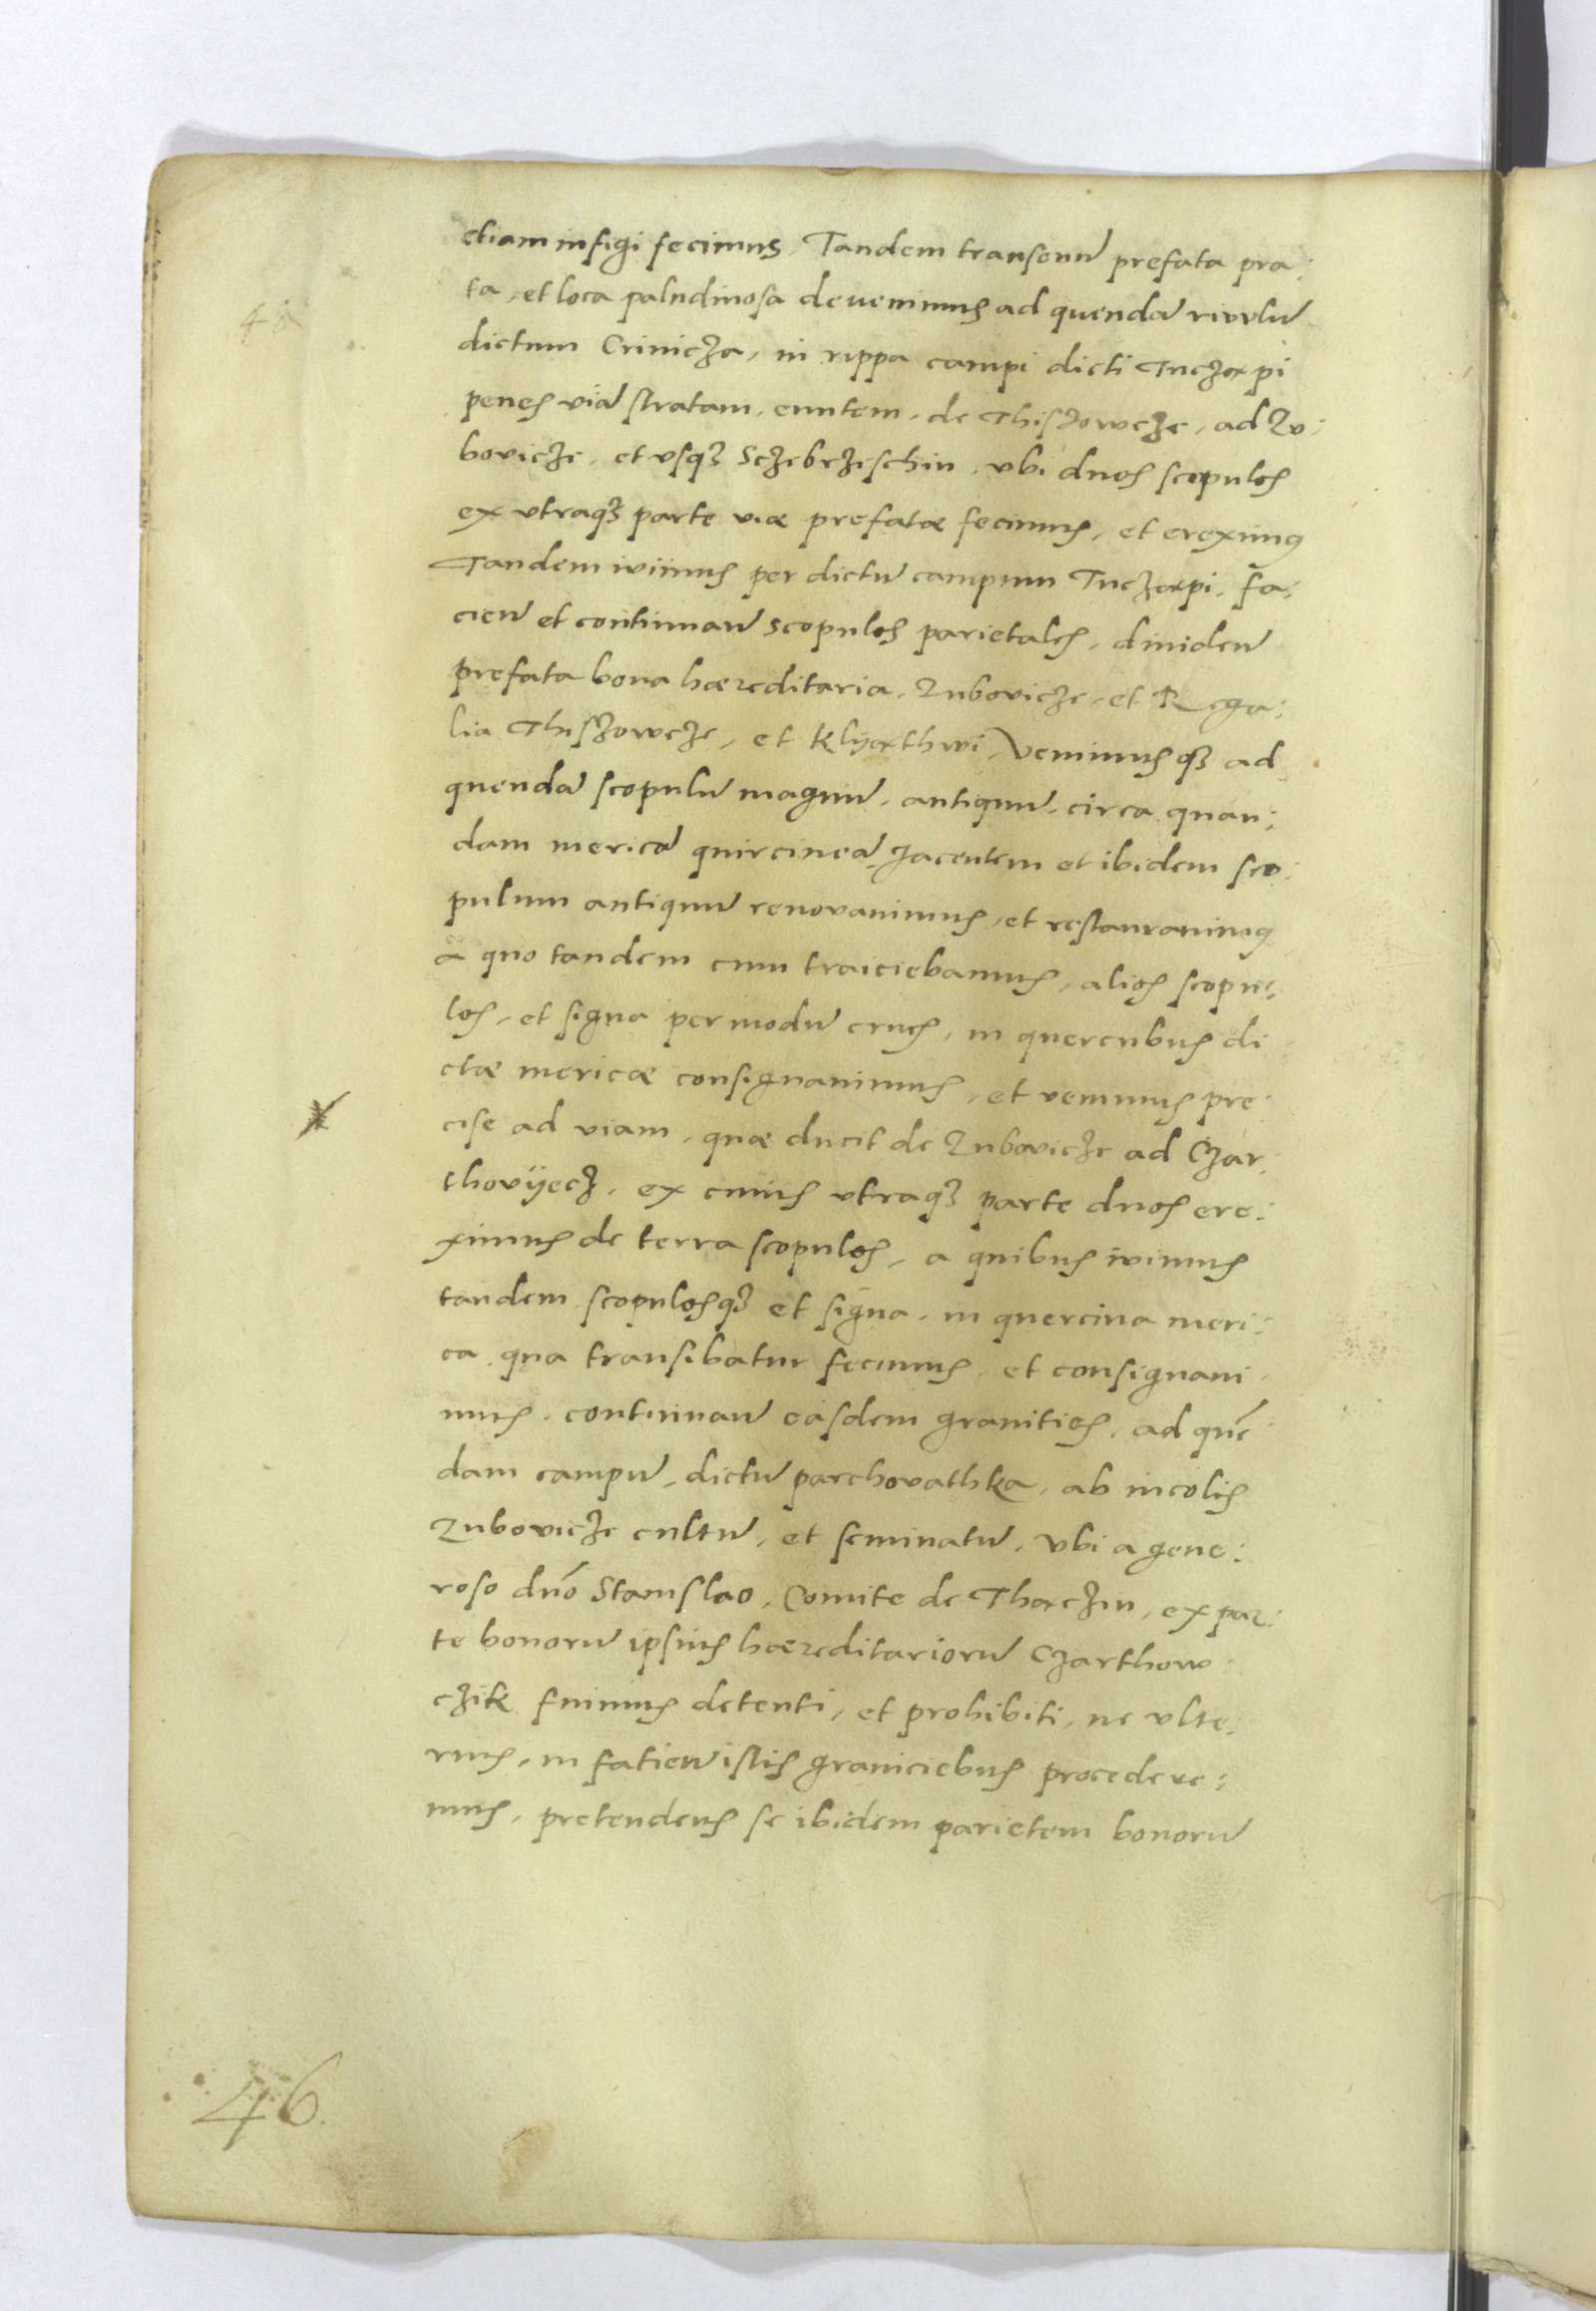 etiam infigi fecimus, Tandem transeun̄ prefata pra:
ta, et loca paludinosa devenimus ad quendā rivvlū
dictum Crinicza, in rippa campi dicti Tuczapi
penes viā stratam, euntem, de Thiszowcze, ad Zu:
bovicze, et vsqȝ Sczebrzeschin, vbi duos scopulos
ex vtraqȝ parte viæ prefatæ fecimus, et ereximus
Tandem ivimus per dictū campum Tuczapi, fa:
cien̄ et continuan̄ scopulos parietales, dividen̄
prefata bona hæreditaria, Zubovicze, et Rega:
lia Thiszowcze, et Klyathwi, Venimusqȝ ad
quendā scopulū magnū, antiquū, circa quan:
dam mericā quircineā, Jacentem et ibidem sco:
pulum antiquū renovavimus, et restauravimus
a quo tandem cum traiciebamus, alios scopu:
los, et signa per modū crucis, in quercubus di
ctæ mericæ consignavimus, et venimus pre
cise ad viam, quæ ducit de Zubovicze ad Czar:
thovyecz, ex cuius vtraqȝ parte duos ere:
ximus de terra scopulos, a quibus ivimus
tandem, scopulosqȝ et signa, in quercina meri:
ca, qua transibatur fecimus, et consignavi
mus, continuan̄ easdem granities, ad quē
dam campū, dictū parchovathka, ab incolis
Zubovicze cultū, et seminatū, Vbi a gene:
roso dn̄o Stanislao, Comite de Thaczin, ex par:
te bonorū ipsius hæreditariorū Czarthow
czik fuimus detenti, et prohibiti, ne vlte:
rius, in fatien̄ istis graniciebus procedere:
mus, pretendens se ibidem parietem bonorū
46.